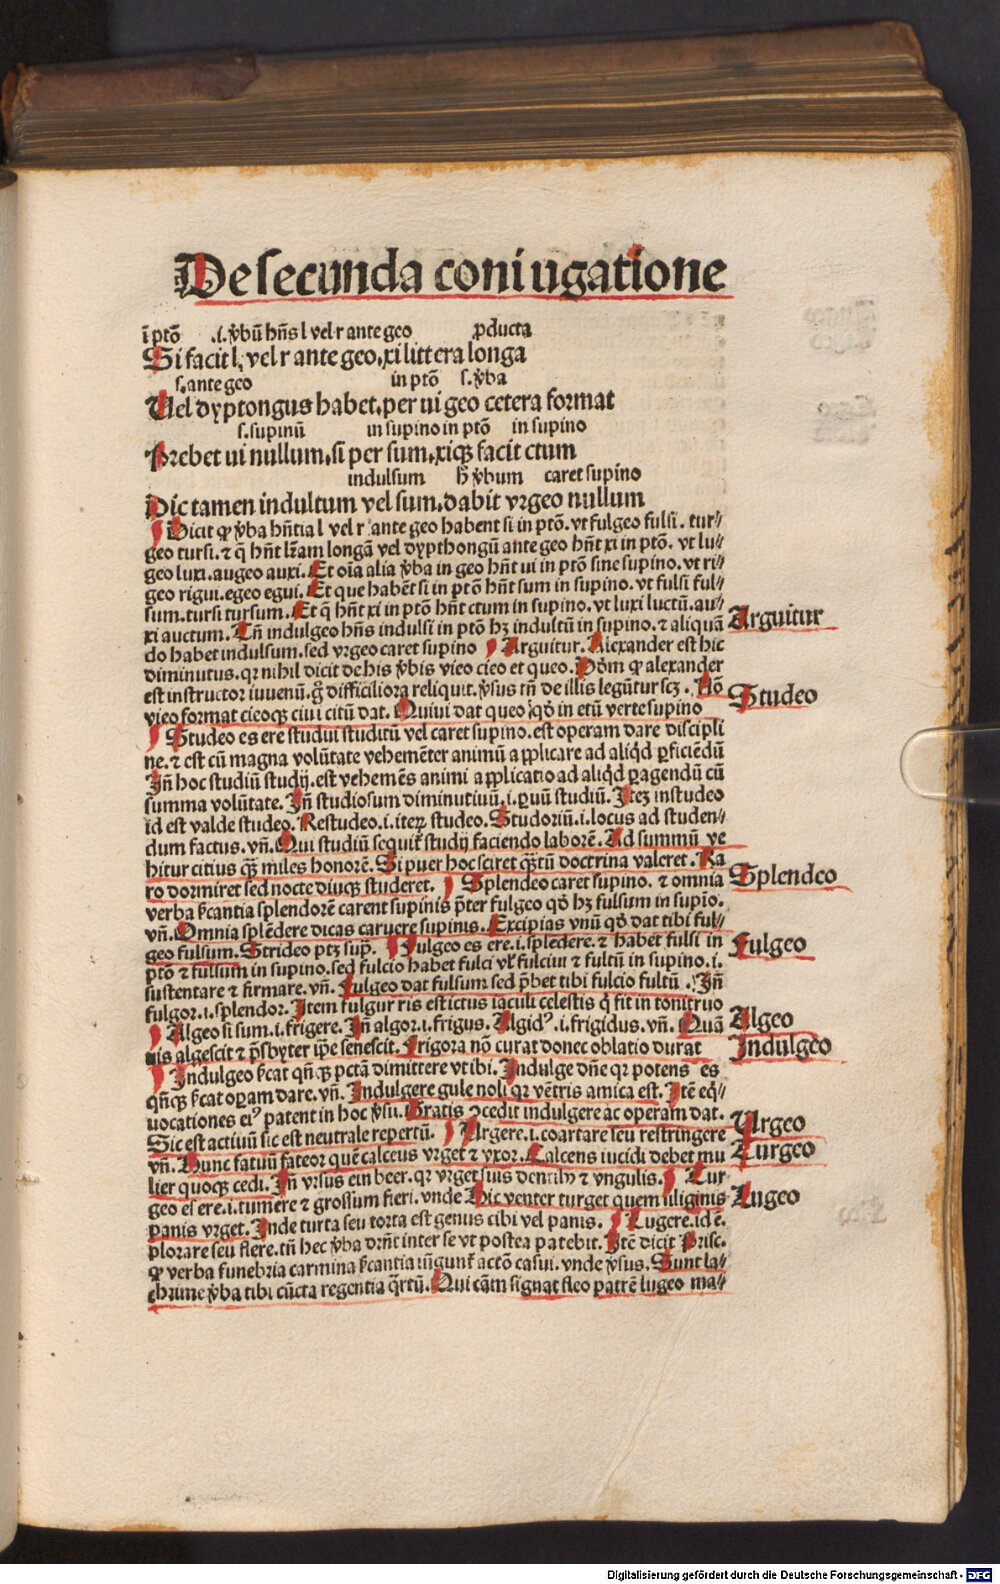 De secunda coniugatione
ī ptō .i. v̄bū hn̄s l vel r ante geo ꝓducta
Si facit l, vel r ante geo, xi littera longa
s. ante geo in ptō s. v̄ba
Vel dyptongus habet, per ui geo cetera format
s. supinū in supino in ptō in supino
Prebet ui nullum, si per sum, xiqꝫ facit ctum
indulsum h̄ v̄bum caret supino
Dic tamen indultum vel sum, dabit vrgeo nullum
Dicit ꝙ v̄ba hn̄tia l vel r ante geo habent si in ptō. vt fulgeo fulsi. tur⸗
geo tursi. ⁊ q̄ hn̄t lr̄am longā vel dypthongū ante geo hn̄t xi in ptō. vt lu⸗
geo luxi. augeo auxi. Et oīa alia v̄ba in geo hn̄t ui in ptō sine supino. vt ri⸗
geo rigui. egeo egui. Et que habēt si in ptō hn̄t sum in supino. vt fulsi ful⸗
sum. tursi tursum. Et q̄ hn̄t xi in ptō hn̄t ctum in supino. vt luxi luctū. au⸗
xi auctum. Tn̄ indulgeo hn̄s indulsi in ptō hꝫ indultū in supino. ⁊ aliquā
do habet indulsum. sed vrgeo caret supino Arguitur. Alexander est hic
Arguitur
diminutus. qꝛ nihil dicit de his v̄bis vieo cieo et queo. Dōm ꝙ alexander
est instructor iuuenū. gͦ difficiliora reliquit. v̄sus tn̄ de illis legūtur scꝫ. Nō
vieo format cieoqꝫ ciui citū dat. Quiui dat queo qd̄ in etū verte supino
Studeo
Studeo es ere studui studitū vel caret supino. est operam dare discipli
ne. ⁊ est cū magna volūtate vehemēter animū applicare ad aliqd̄ ꝑficiēdū
Jn̄ hoc studiū studij. est vehemēs animi applicatio ad aliqd̄ ꝑagendū cū
summa volūtate. Jn̄ studiosum diminutiuū. i. ꝑuū studiū. Jteꝫ instudeo
id est valde studeo. Restudeo. i. iteꝝ studeo. Studoriū. i. locus ad studen⸗
dum factus. vn̄. Qui studiū sequit᷑ studij faciendo laborē. Ad summū ve
hitur citius qꝫ̄ miles honorē. Si puer hoc sciret qꝫ̄tū doctrina valeret. Ra
ro dormiret sed nocte diuqꝫ studeret. Splendeo caret supino. ⁊ omnia
Splendeo
verba ſcantia splendorē carent supinis p̄ter fulgeo qd̄ hꝫ fulsum in supīo.
vn̄. Omnia splēdere dicas caruere supinis. Excipias vnū qd̄ dat tibi ful⸗
geo fulsum. Strideo ptꝫ sup̄. Fulgeo es ere. i. splēdere. ⁊ habet fulsi in
Fulgeo
ptō ⁊ fulsum in supino. sed fulcio habet fulci vl̓ fulciui ⁊ fultū in supino. i.
sustentare ⁊ firmare. vn̄. Fulgeo dat fulsum sed p̄bet tibi fulcio fultū. Jn̄
fulgor. i. splendor. Jtem fulgur ris est ictus iaculi celestis q̄ fit in tonitruo
Algeo si sum. i. frigere. Jn̄ algor. i. frigus. Algidꝰ. i. frigidus. vn̄. Quā
Algeo
uis algescit ⁊ p̄sbyter ip̄e senescit. Frigora nō curat donec oblatio durat
Jndulgeo
Jndulgeo ſcat qn̄qꝫ pctā dimittere vt ibi. Jndulge dn̄e qꝛ potens es
qn̄qꝫ ſcat oꝑam dare. vn̄. Jndulgere gule noli qꝛ vētris amica est. Jtē eq̄⸗
uocationes eiꝰ patent in hoc v̄su. Gratis ꝯcedit indulgere ac operam dat.
Sic est actiuū sic est neutrale repertū. Vrgere. i. coartare seu restringere
Vrgeo
vn̄. Hunc fatuū fateor quē calceus vrget ⁊ vxor. Calcens iucidi debet mu
Turgeo
lier quoqꝫ cedi. Jn̄ vrsus ein beer. qꝛ vrget suis dentibꝫ ⁊ vngulis. Tur
geo es ere. i. tumere ⁊ grossum fieri. vnde Hic venter turget quem siliginis
Lugeo
panis vrget. Jnde turta seu torta est genus cibi vel panis. Lugere. id ē.
plorare seu flere. tn̄ hec v̄ba dr̄nt inter se vt postea patebit. Jtē dicit Prisc.
ꝙ verba funebria carmina ſcantia iūgunt᷑ actō casui. vnde v̄sus. Sunt la⸗
chrime v̄ba tibi cūcta regentia q̄rtū. Qui cām signat fleo patrē lugeo ma⸗
Digitalisierung gefördert durch die Deutsche Forschungsgemeinschaft - DFG